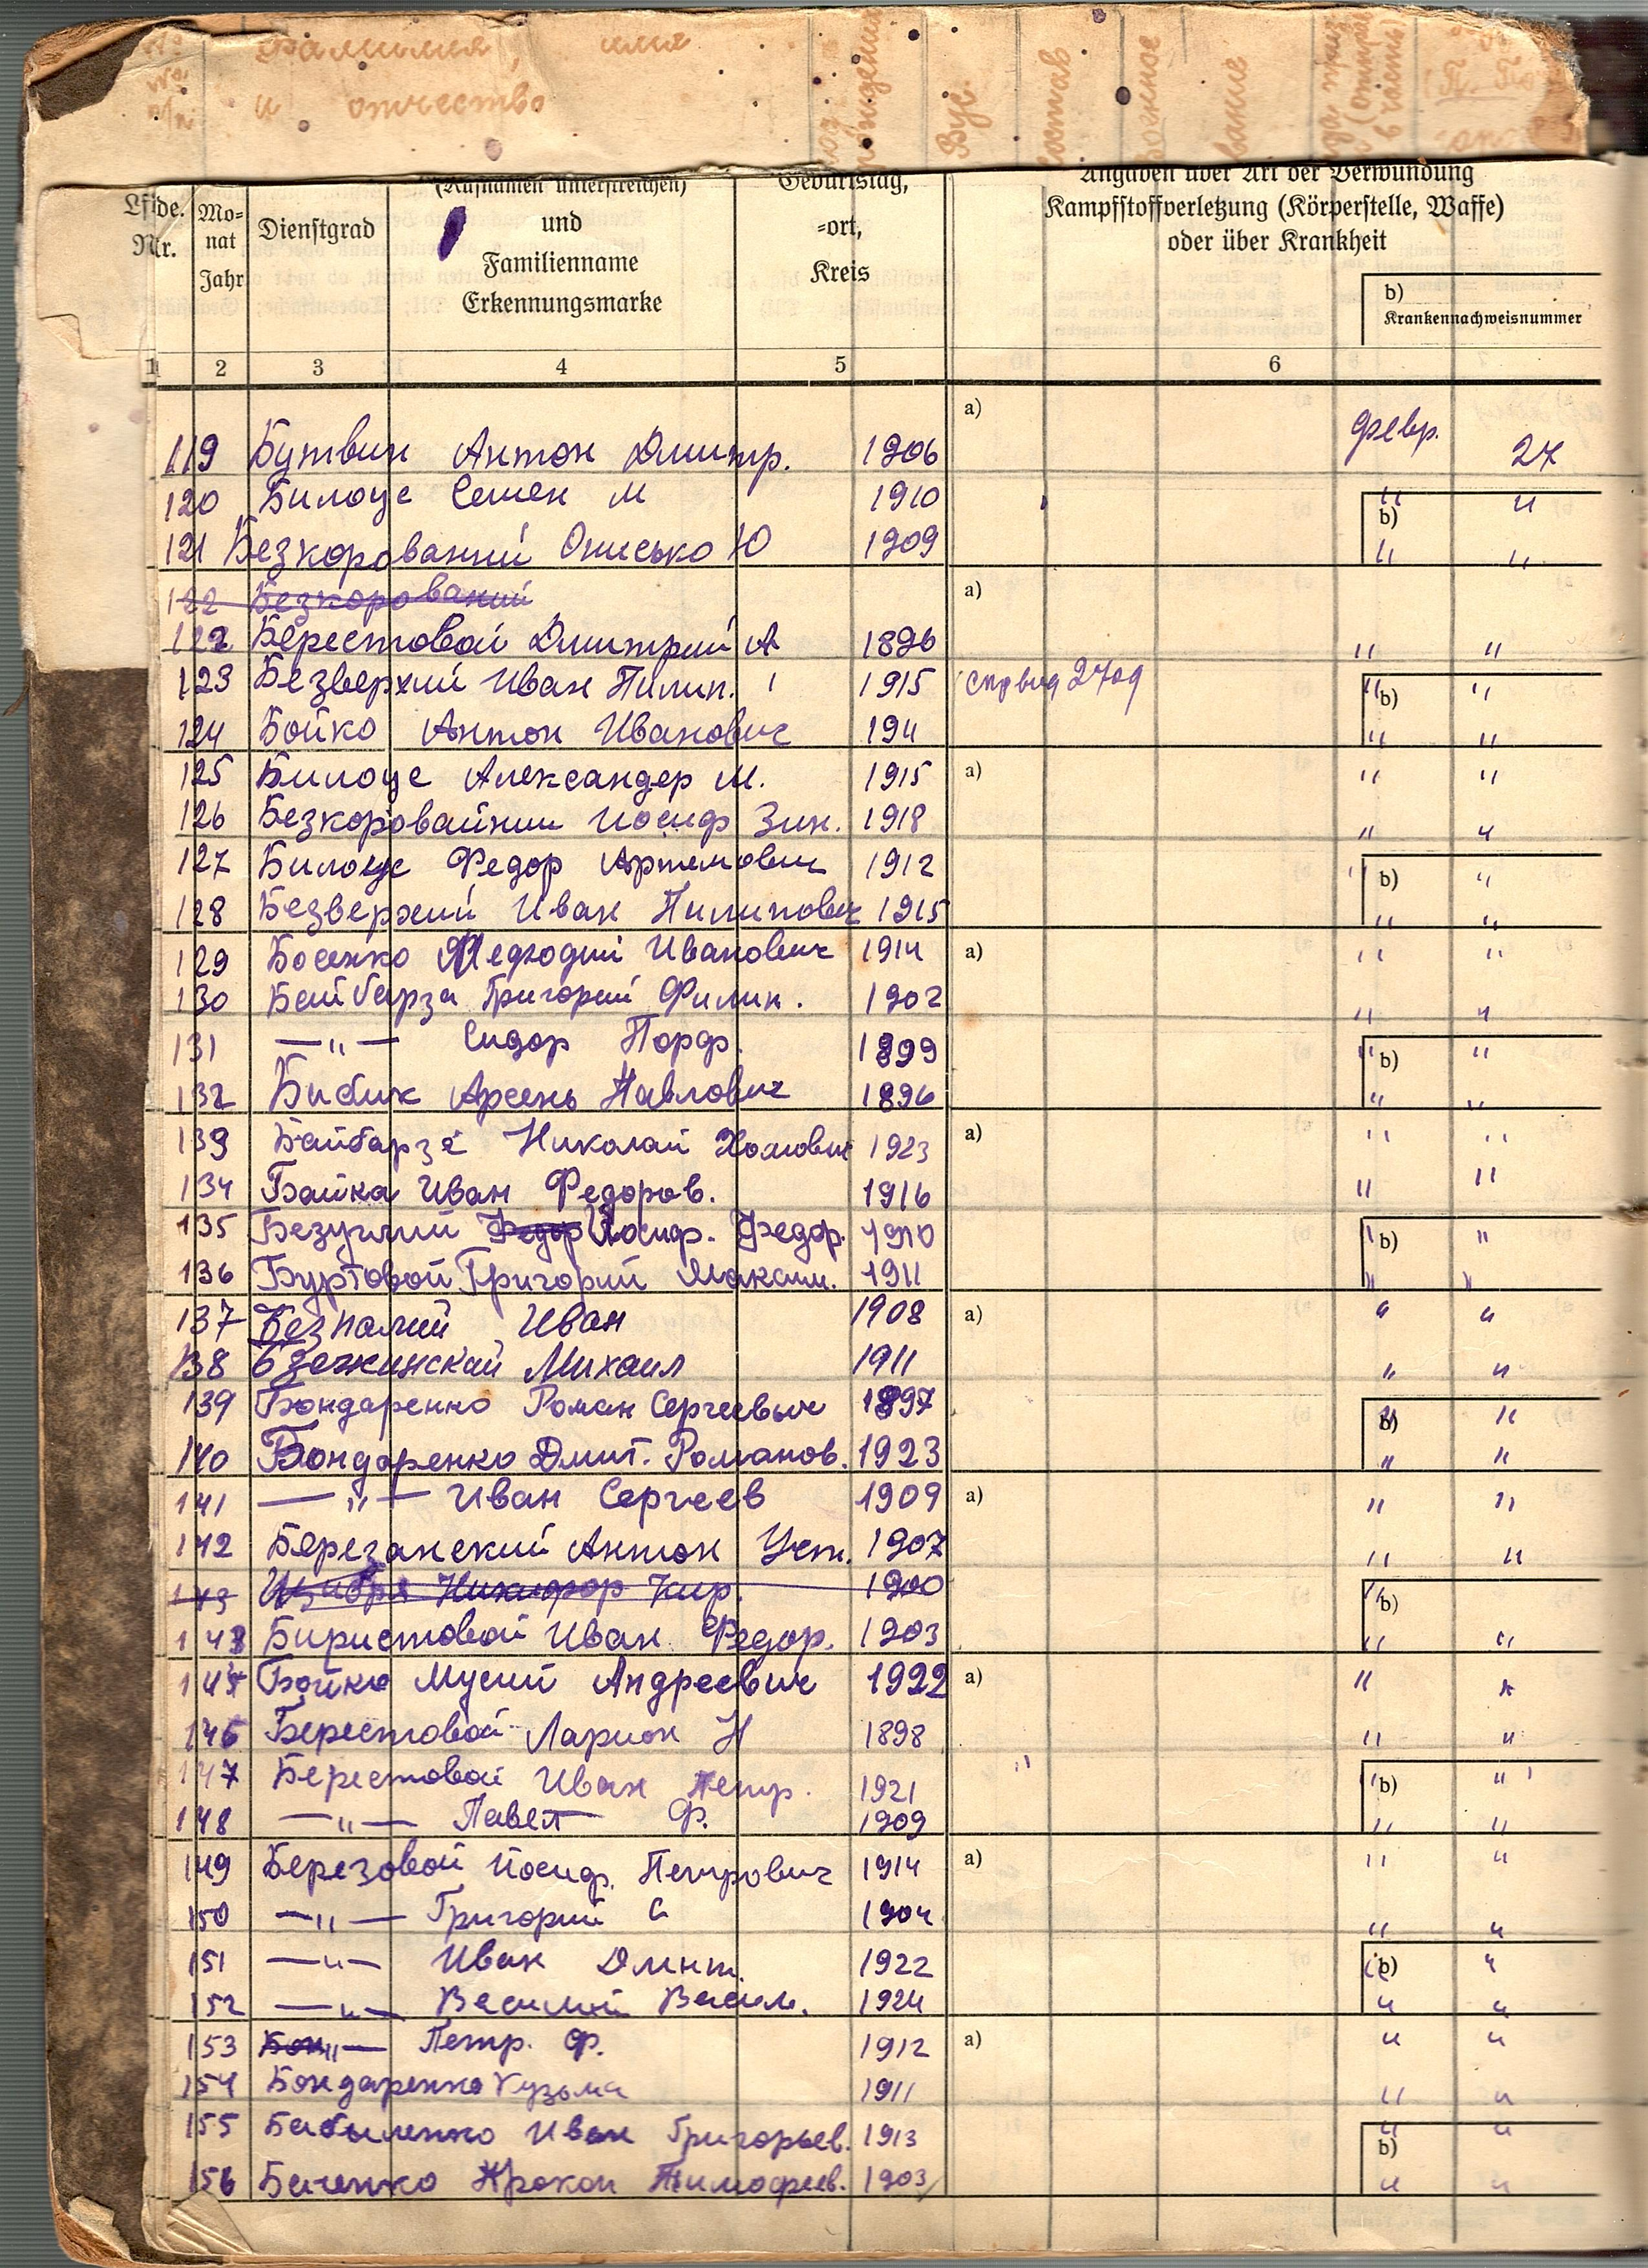 Фамилия, имя
и отчество
№ п/п
рождения
Вус.
состав
звание
(Rufnamen unterstreichen)
Geburtstag,
Angaben über Art der Verwundung
Lfde. Nr.
Mo-nat Jahr
Dienstgrad
und
Familienname
Erkennungsmarke
-ort,
Kreis
Kampfstoffverletzung (Körperstelle, Waffe)
oder über Krankheit
b)
Krankennachweisnummer
1 2 3 4 5 6
a)
119 Бутвин Антон Дмитр. 1906 февр. 27
120 Билоус Семен М 1910 " b) "
121 Безкорований Онисько Ю 1909 " "
122 Безкорований a)
122 Берестовой Дмитрий А 1896 " "
123 Безверхий Иван Пилип. 1915 " b) "
124 Бойко Антон Иванович 194 " "
125 Билоус Александер М. 1915 a) " "
126 Безкоровайний Иосиф Зин. 1918 " "
127 Билоус Федор Артемович 1912 " b) "
128 Безверхий Иван Пилипович 1915 " "
129 Босенко Иванович 1914 a) " "
130 Байбарза Григорий Филип. 1902 " "
131 —"— Сидор Порф. 1899 " b) "
132 Бибик Арсень Павлович 1896 " "
133 Байбарза Николай Хомович 1923 a) " "
134 Байка Иван Федоров. 1916 " "
135 Безуглий Федор Иосиф. Федор. 1910 " b) "
136 Буртовой Григорий Максим. 1911 " "
137 Безпалий Иван 1908 a) " "
138 Михаил 1911 " "
139 Бондаренко Роман Сергеевич 1897 " b) "
140 Бондаренко Дмит. Романов. 1923 " "
141 —"— Иван Сергеев 1909 a) " "
142 Березанский Антон Уст. 1907 " "
143 Никифор Кир. 1900 " b)
143 Биристовой Иван Федор. 1903 " "
145 Бойко Мусий Андреевич 1922 a) " "
146 Берестовой Ларион Н 1898 " "
147 Берестовой Иван Петр. 1921 " b) "
148 —"— Павел Ф. 1909 " "
149 Березовой Иосиф. Петрович 1914 a) " "
150 —"— Григорий С 1904 " "
151 —"— Иван Дмит. 1922 " b) "
152 —"— Василий Васил. 1924 " "
153 Бон —"— Петр. Ф. 1912 a) " "
154 Бондаренко Кузьма 1911 " "
155 Бабыленко Иван Григорьев. 1913 " b) "
156 Баченко Прокоп Тимофеев. 1903 " "